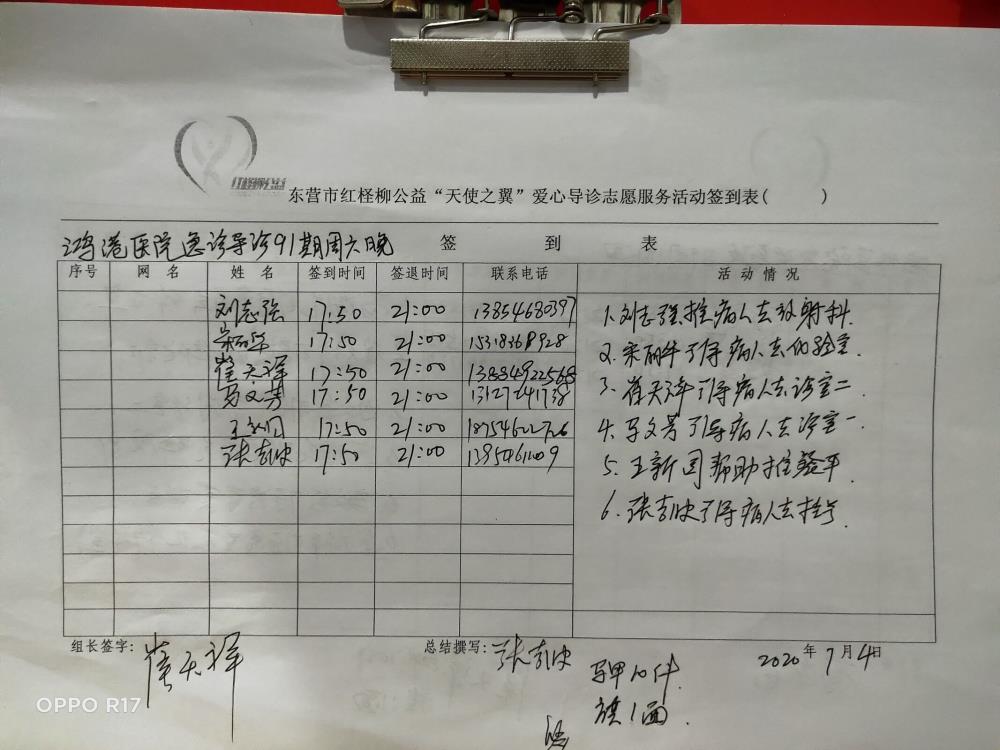 红柽柳公益
东营市红柽柳公益“天使之翼”爱心导诊志愿服务活动签到表(      )
鸿港医院急诊导诊91期周六晚 签 到 表
序号 网 名 姓 名 签到时间 签退时间 联系电话 活 动 情 况
刘志强 17:50 21:00 13854680397
宋丽华 17:50 21:00 15318368928
崔天泽 17:50 21:00 13884922568
马文芳 17:50 21:00 13127241738
王新国 17:50 21:00
张吉忠 17:50 21:00
1.刘志强推病人去放射科.
2.宋丽华引导病人去化验室.
3.崔天泽引导病人去诊室二.
4.马文芳引导病人去诊室一.
5.王新国帮助推
6.张吉忠引导病人去挂号.
组长签字: 崔天泽 总结撰写: 张吉忠 2020年7月4日
马甲10件.
旗1面.
OPPO R17